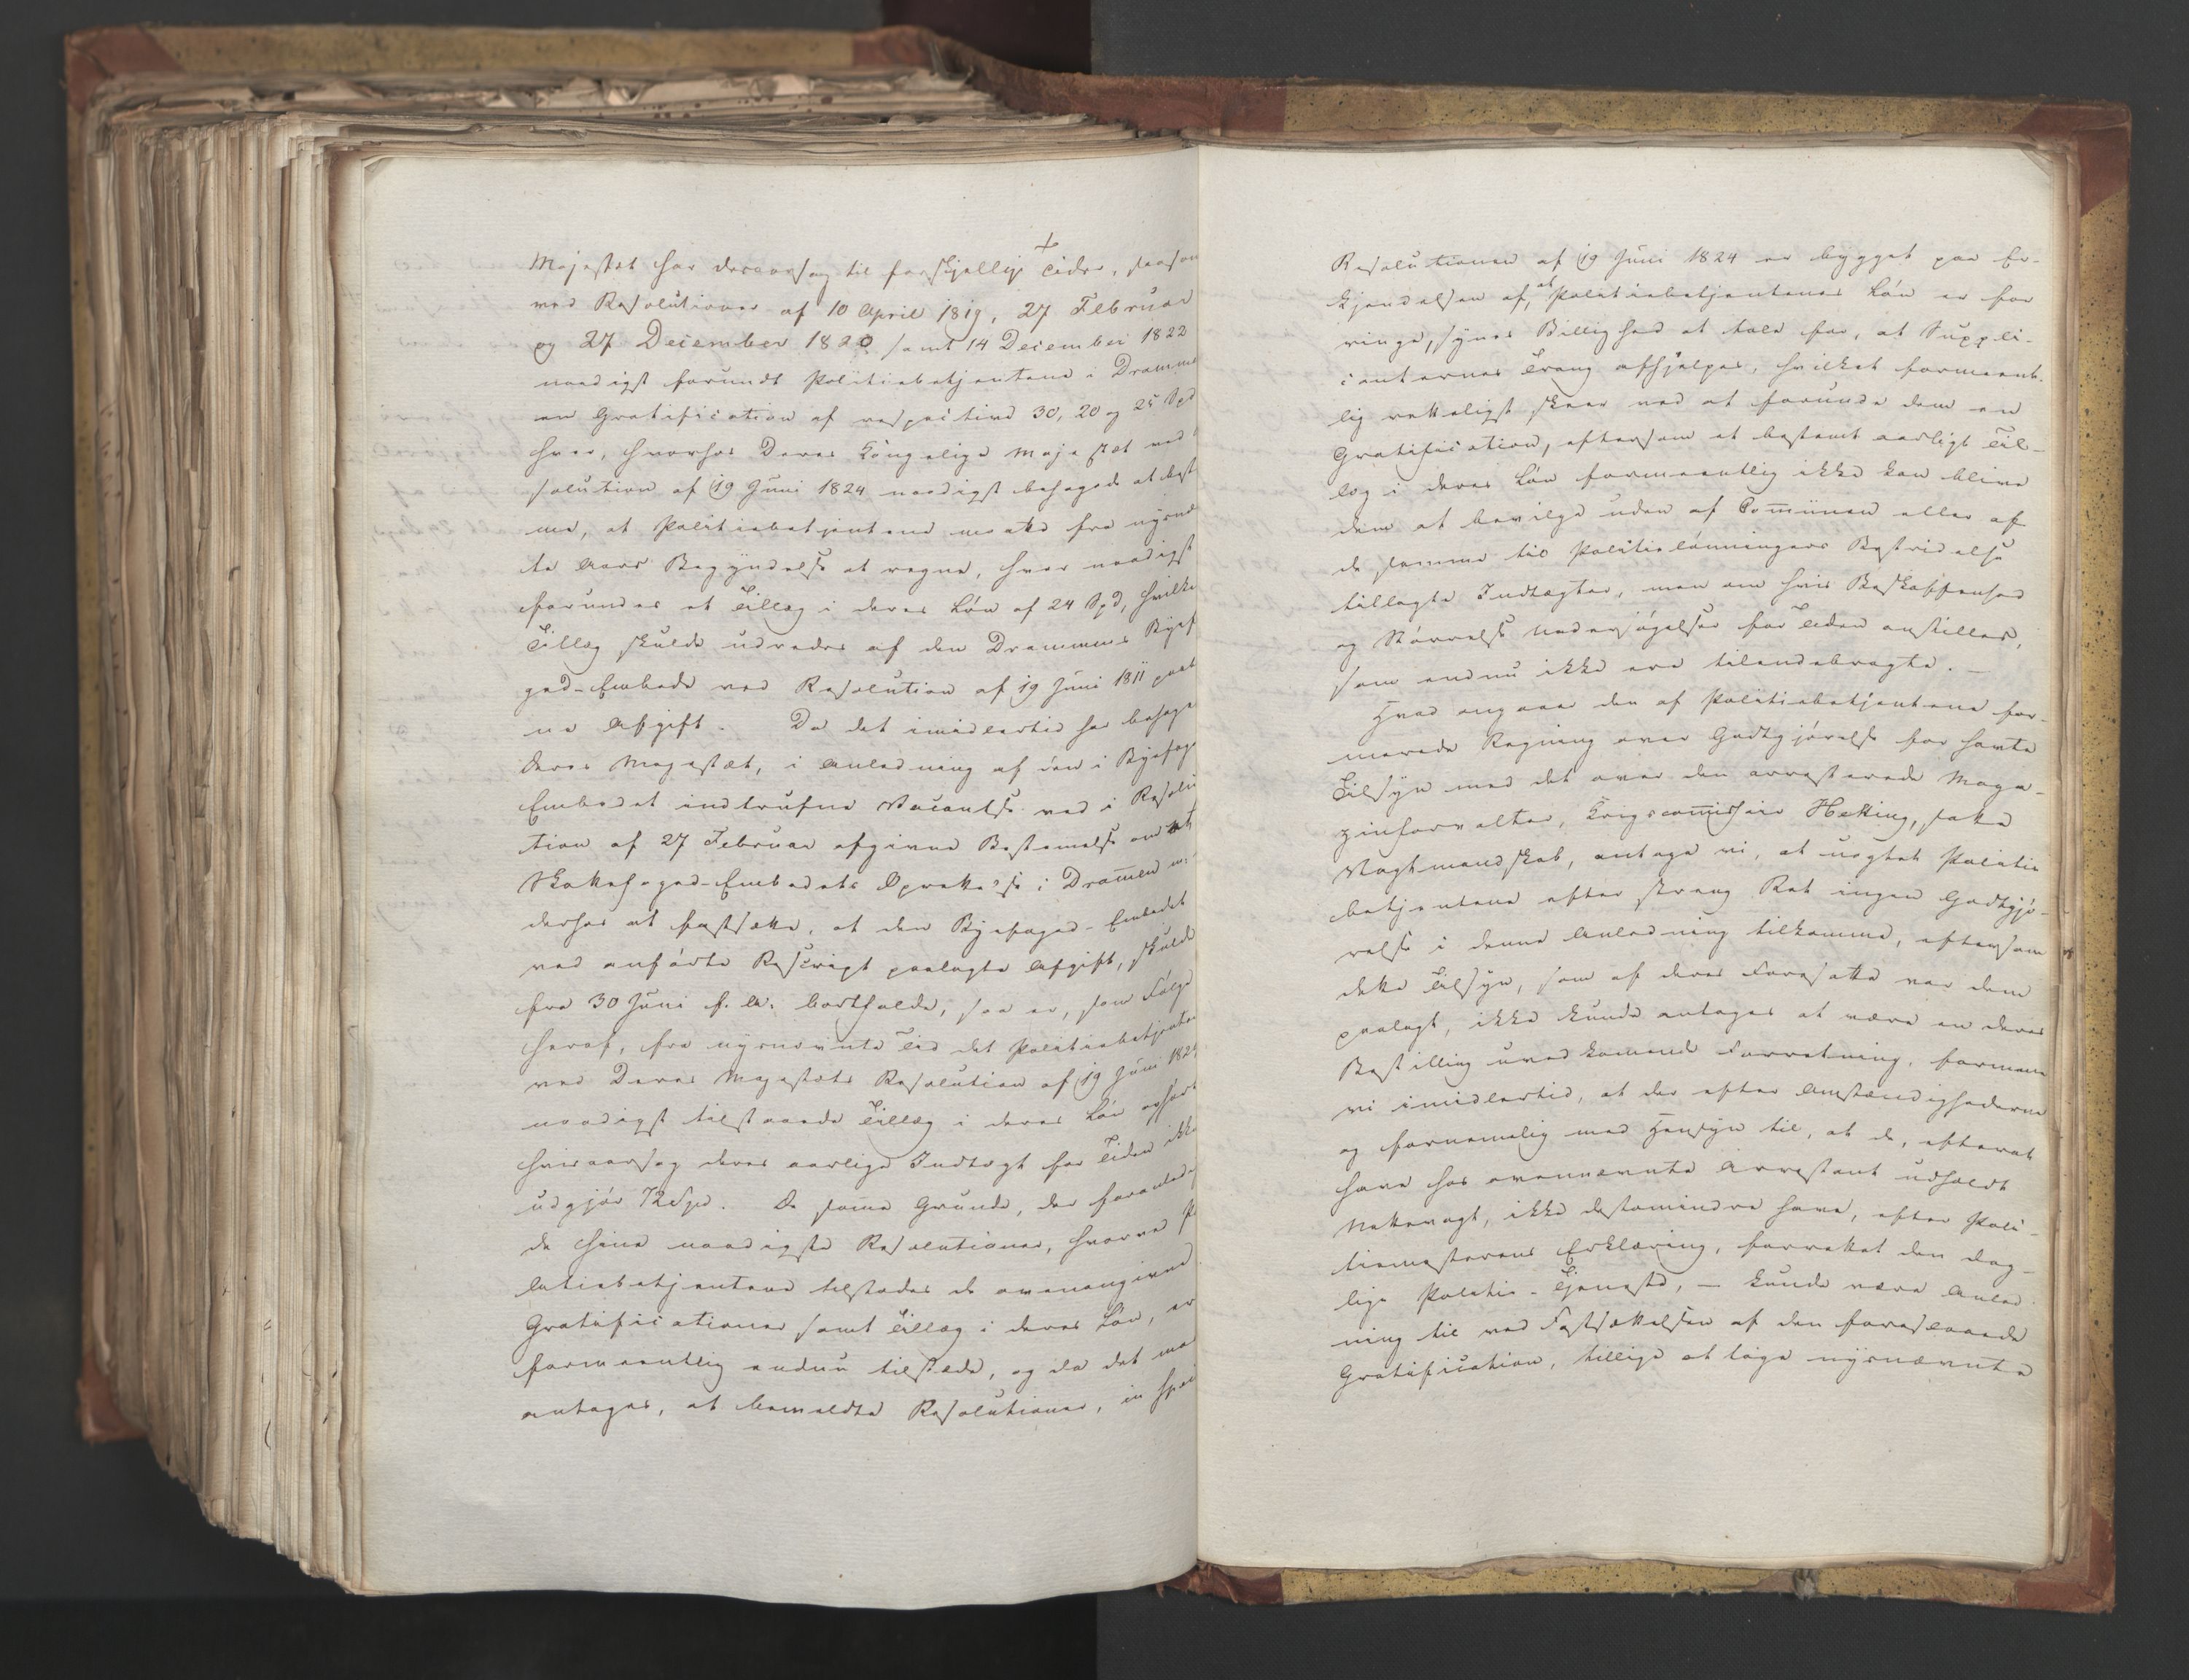 Majestæt har desaarsag til forskjellige Tider, saasom
ved Resolutioner af 10 April 1819, 27 Februar
og 27 December 1820 samt 14 December 1822
naadigst forundt Politiebetjentene i Dramme
en Gratification af respective 30, 20 og 25 Spd
hver, hvorhos Deres Kongelige Majestæt ved
solution af 19 Juni 1824 naadigst behagede at best
me, at Politiebetjentene maatte fra nysnæ
te Aars Begyndelse at regne, hver naadigst
forundes et Tillæg i deres Løn af 24 Spd, hvilke
Tillæg skulde udredes af den Drammens Byef
ged-Embede ved Resolution af 19 Juni 1811 paal
ne Afgift. Da det imidlertid har behage
Deres Majestæt, i Anledning af den i Byefoge
Embedet indtrufne Vacantse ved i Resolu
tion af 27 Februar afgivne Bestemelse om at
Skattefoged-Embedets Oprettelse i Dramen
derhos at fastsætte, at den Byefoged-Embedet
ved anførte Rescript paalagte Afgift, skulde
fra 30 Juni f. A. bortfalde, saa er, som Følge
heraf, fra nysnævnte Tid det Politiebetjente
ved Deres Majestæts Resolution af 19 Juni 1824
naadigst tilstaaede Tillæg i deres Løn ophør
hvisaarsag deres aarlige Indtægt for Tiden ikke
udgjør 72 Spd. De samme Grunde, der foranled
de hine naadigste Resolutioner, hvorved Po
litiebetjentene tilstodes de ovenangivne
Gratificationer samt Tillæg i deres Løn, er
formeentlig endnu tilstæde, og da det maa
antages, at bemeldte Resolutioner, in spe
Resolutionen af 19 Juni 1824 er bygget paa Er-
kjendelsen af, at Politiebetjentenes Løn er for
ringe, synes Billighed at tale for, at Suppli-
canternes Trang afhjelpes, hvilket formeent-
lig retteligst skeer ved at forunde dem en
Gratification, eftersom et bestemt aarligt Til-
læg i deres Løn formeentlig ikke kan blive
dem at bevilge uden af Communen eller af
de samme til Politielønningers Bestridelse
tillagte Indtægter, men om hvis Beskaffenhed
og Størrelse Undersøgelser for Tiden anstilles,
som endnu ikke ere tilendebragte. —
Hvad angaaer den af Politiebetjentene for-
merede Regning over Godtgjørelse for havte
Tilsyn med det over den arresterede Maga-
zinforvalter, Krigscommissair Hetting, satte
Vagtmandskab, antage vi, at uagtet Politie
betjentene efter streng Ret ingen Godtgjø-
relse i denne Anledning tilkomme, eftersom
dette Tilsyn, som af deres Foresatte var dem
paalagt, ikke kunde antages at være en deres
Bestilling uvedkomende Forretning, formene
vi imidlertid, at der efter Omstændighederne
og fornemelig med Hensyn til, at de, efterat
have hos ovennævnte Arrestant udholdt
Nattevagt, ikke destomindre have, efter Poli-
tiemesterens Erklæring, forrettet den dag-
lige Politie-Tjeneste, — kunde være Anled
ning til ved Fastsættelsen af den foreslaaede
Gratification, tillige at tage nysnævnte